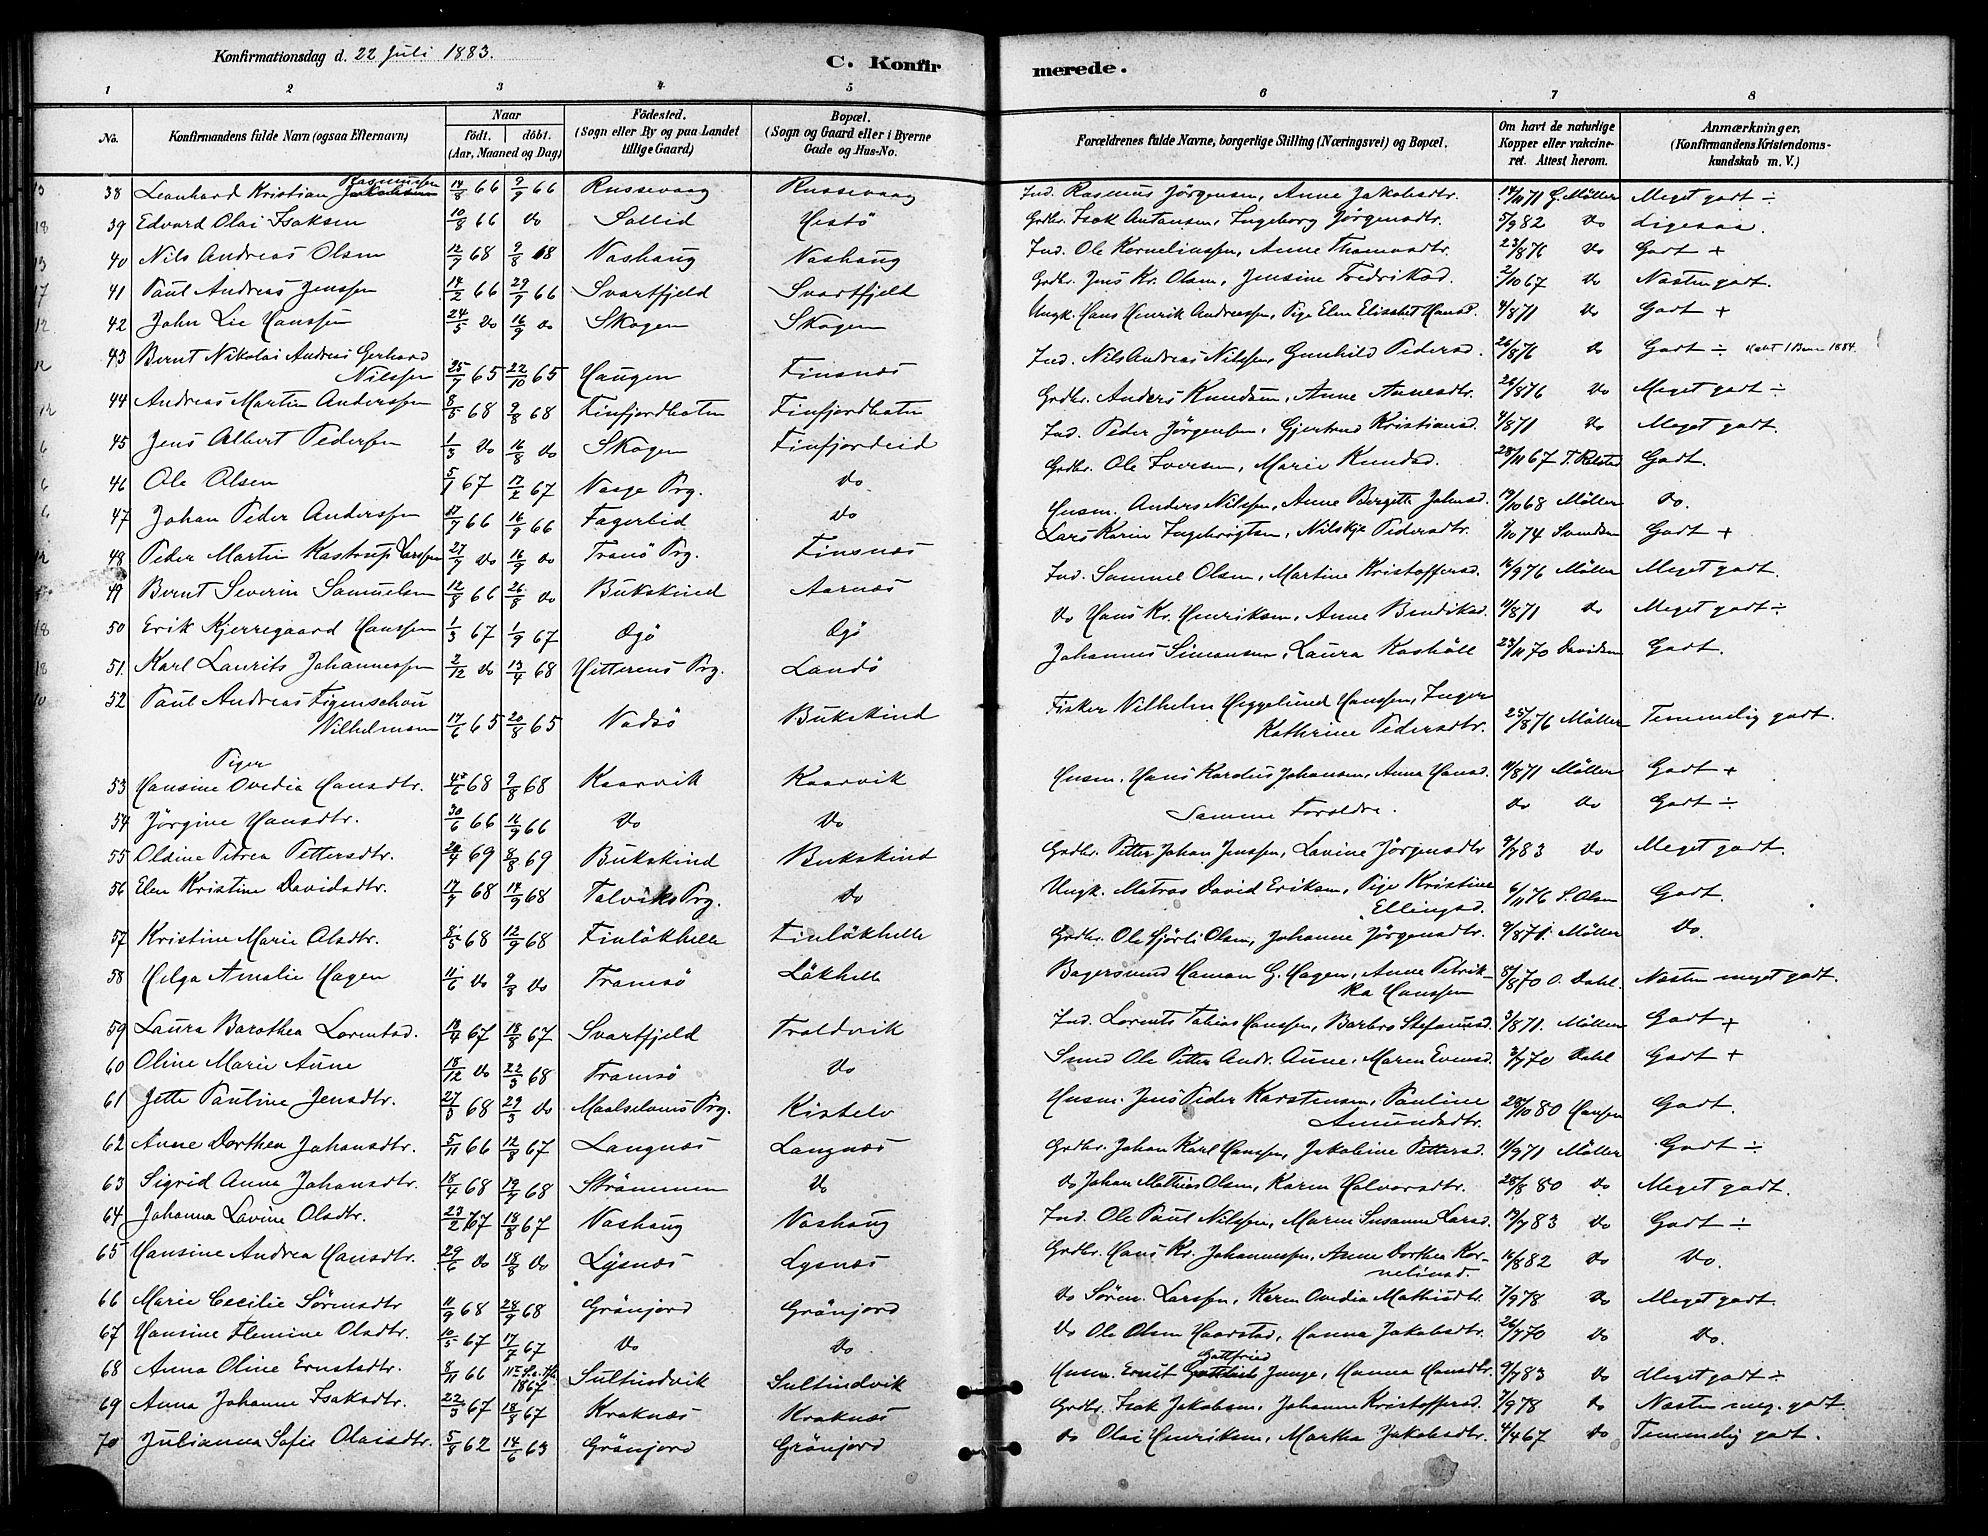 Konfirmationsdag d. 22 Juli 1883.
C. Konfir
merede.
1 2 3 4 5 6 7 8
No. Konfirmandens fulde Navn (ogsaa Efternavn) Naar födt. döbt. (Aar, Maaned og Dag) Födested. (Sogn eller By og paa Landet tillige Gaard) Bopæl. (Sogn og Gaard eller i Byerne Gade og Hus-No. Forældrenes fulde Navne, borgerlige Stilling (Næringsvei) og Bopæl. Om havt de naturlige Kopper eller vakcineret. Attest herom. Anmærkninger. (Konfirmandens Kristendomskundskab m. V.)
38 Leonhard Kristian Rasmussen 14/8 66 9/9 66 Russevaag Russevaag Ind. Rasmus Jörgensen, Anne Jakobsdtr. 14/10 71 G. Möller Meget godt ÷
39 Edvard Olai Isaksen 10/8 66 do Sollid Hestö Grdbr. Isak Antonsen, Ingeborg Jörgensdtr. 5/9 82 do Ligesaa.
40 Nils Andreas Olsen 12/7 68 9/8 68 Vashaug Vashaug Ind. Ole Korneliussen, Anne Thomasdtr. 23/8 76 do Godt +
41 Paul Andreas Jenssen 14/2 66 29/9 66 Svartfjeld Svartfjeld Grdbr. Jens Kr. Olsen, Jensine Fredriksd. 2/10 67 do Næsten godt.
42 John Lie Hanssen 24/5 do 16/9 do Skogen Skogen Ungk. Hans Henrik Andreassen, Pige Elen Elisabet Hansd. 4/8 71 do Godt +
43 Bernt Nikolai Andreas Gerhard
Nilssen 25/7 65 22/10 65 Haugen Finsnæs Ind. Nils Andreas Nilssen, Gunhild Pedersd. 26/8 76 do Godt ÷
44 Andreas Martin Anderssen 8/5 68 9/8 68 Finfjordbotn Finfjordbotn Grdbr. Anders Knudsen, Anne Arnesdtr. 26/8 76 do Meget godt ÷
45 Jens Albert Pedersen 1/3 do 16/8 do Skogen Finfjordeid Ind. Peder Jörgensen, Gjertrud Kristiansd. 4/8 71 do Meget godt.
46 Ole Olsen 5/1 67 17/2 67 Vaage Prg. do Grdbr. Ole Iversen, Marie Knudsd. 28/11 67 Godt.
47 Johan Peder Anderssen 27/7 66 16/9 66 Fagerlid do Husm. Anders Nilssen, Anne Bergitte Johnsd. 19/10 68 Möller do.
48 Peder Martin Kastrup Larssen 27/7 do 16/9 do Tranö Prg. Finsnæs Lars Karin Ingebrigtsen, Nilskje Pedersdtr. 1/10 74 Svendsen Godt +
49 Bernt Severin Samuelsen 12/8 66 26/8 do Bukskind Aarnæs Ind. Samuel Olsen, Martine Kristoffersd. 16/9 76 Möller Meget godt.
50 Erik Kjerregaard Hanssen 1/3 67 1/9 67 Ogö Ogö do Hans Kr. Henriksen, Anne Bendiksd. 11/8 71 do Meget godt ÷
51. Karl Laurits Johannessen 2/12 do 13/4 68 Hitterens Prg. Landö Johannes Simonsen, Laura Kashöll 23/11 70 Davidsen Godt.
52 Paul Andreas Figenschou
Vilhelmsen 17/6 65 20/8 65 Vadsö Bukskind Fisker Vilhelm Heggelund Hanssen, Inger
Kathrine Pedersdtr. 25/8 76 Möller Temmelig godt.
Piger
53 Hansine Ovedia Hansdtr. 4/6 68 9/8 68 Kaarvik Kaarvik Husm. Hans Kardius Johansen, Anna Hansd. 11/8 71 Möller Godt +
54 Jörgine Hansdtr. 30/6 66 11/9 66 do do Samme Forældre. do do Godt ÷
55 Olsine Petrea Pettersdtr. 20/4 69 8/8 69 Bukskind Bukskind Grdbr. Petter Johan Jenssen, Lavine Jörgensdtr 9/7 83 do Meget godt.
56 Elen Kristine Davidsdtr. 17/7 68 14/9 68 Talviks Prg. do Ungk. Matros David Eriksen, Pige Kristine
Ellingsd. 6/11 76 S. Olsen Godt.
57 Kristine Marie Olsdtr. 2/5 68 12/9 68 Finlökhelle Finlökhelle Grdbr. Ole Hjörli Olsen, Johanne Jörgensdtr. 9/8 71. Möller do.
58 Helga Amalie Hagen 11/6 do 9/8 do Tromsö Lökhelle Bagersvend Haman G. Hagen, Anne Petrik-
ka Hanssen 8/8 70 O. Dahl. Næsten meget godt.
59 Laura Barothea Lorentsd. 14/4 67 18/8 67 Svartfjeld Troldvik Ind. Lorents Tobias Hanssen, Barbro Stefansd. 3/8 71. Möller Godt +
60 Oline Marie Aune 18/12 do 22/3 68 Tromsö do Smed Ole Petter Andr. Aune, Maren Evensd. 3/7 70 Dahl Godt +
61 Jette Pauline Jensdtr. 27/3 68 29/3 do Maalselvens Prg. Kistelv Husm. Jens Peder Karstensen, Pauline
Amundsdtr. 28/10 80 Hansen Godt.
62 Anne Dorthea Johansdtr. 5/11 66 12/8 67 Langnæs Langnæs Grdbr. Johan Karl Hanssen, Jakobine Pettersd. 11/9 71 Möller Godt ÷
63 Sigrid Anna Johansdtr. 18/4 68 19/7 68 Strömmen do do Johan Mathias Olsen, Karen Halvorsdtr. 28/8 80 do Meget godt.
64 Johanna Lavine Olsdtr. 23/2 67 18/8 67 Vashaug Vashaug Ind. Ole Paul Nilssen, Maren Susanna Larsd. 17/7 83 do Godt ÷
65 Hansine Andrea Hansdtr. 29/6 do 18/8 do Lysnæs Lysnæs Grdbr. Hans Kr. Johannessen, Anne Dorthea Kor-
neliusd. 16/8 82 do do.
66 Marie Cecilie Sörensdtr 11/9 68 28/9 68 Grönjord Grönjord do Sören Larssen, Karen Ovedia Mathisdtr. 7/9 78 do Meget godt.
67 Hansine Flemine Olsdtr. 10/5 67 17/7 67 do do do Ole Olsen Haarstad, Hanna Jakobsdtr. 26/7 70 do do.
68 Anna Oline Ernstsdtr. 8/11 66 1867 Sultindvik Sultindvik Husm. Ernst Gottfried Junge, Hanna Hansdtr. 9/7 83 do Meget godt ÷
69 Anna Johanne Isaksdtr. 22/3 67 18/8 67 Kraknæs Kraknæs Grdbr. Isak Jakobsen, Johanne Kristoffersd. 7/9 78 do Næsten meg. godt.
70 Julianna Sofie Olaisdtr. 5/8 62 14/6 63 Grönjord Grönjord do Olai Henriksen, Martha Jakobsdtr. 4/4 67 do Temmelig godt.